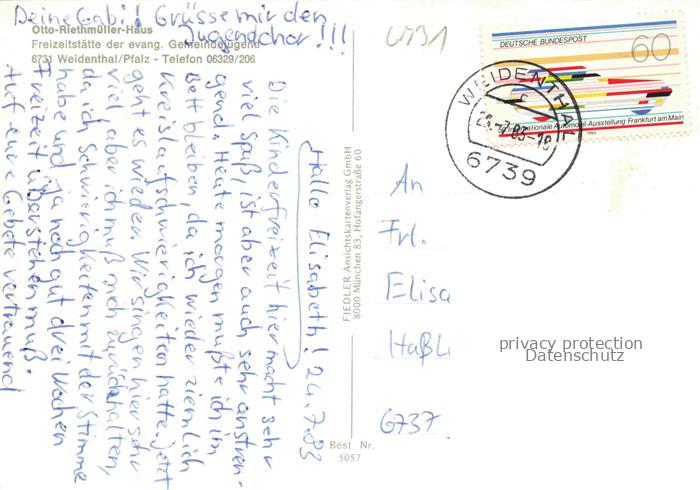 Deine Gabi! Grüsse mir den
Jugendchor!!!
Otto-Riethmüller-Haus
Freizeitstätte der evang. Gemeindejugend
6731 Weidenthal/Pfalz - Telefon 06329/206
Hallo Elisabeth! 24.7.83
Die Kinderfreizeit hier macht sehr
viel spaß, ist aber auch sehr anstren-
gend. Heute morgen mußte ich im
Bett bleiben, da ich wieder ziemlich
Kreislaufschwierigkeiten hatte. Jetzt
geht's wieder. Wir singen hier sehr
viel, aber ich muß mich zurückhalten,
da ich Schwierigkeiten mit der Stimme
habe und ja noch gut drei Wochen
Freizeit überstehen muß.
Auf eure Gebete vertrauend
FIEDLER Ansichtskartenverlag GmbH
8000 München 83, Hofangerstraße 60
Best. Nr.
5057
6731
DEUTSCHE BUNDESPOST
60
Internationale Automobil-Ausstellung Frankfurt am Main
1983
WEIDENTHAL
6739
An
Frl.
Elisa
Haßl
6737
privacy protection
Datenschutz